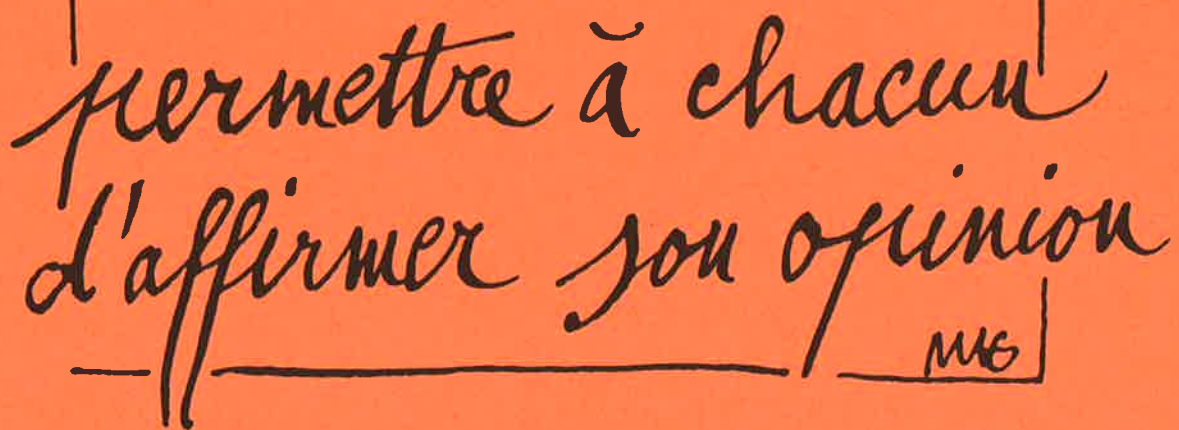 permettre ă chacun
d'affirmer son opinion